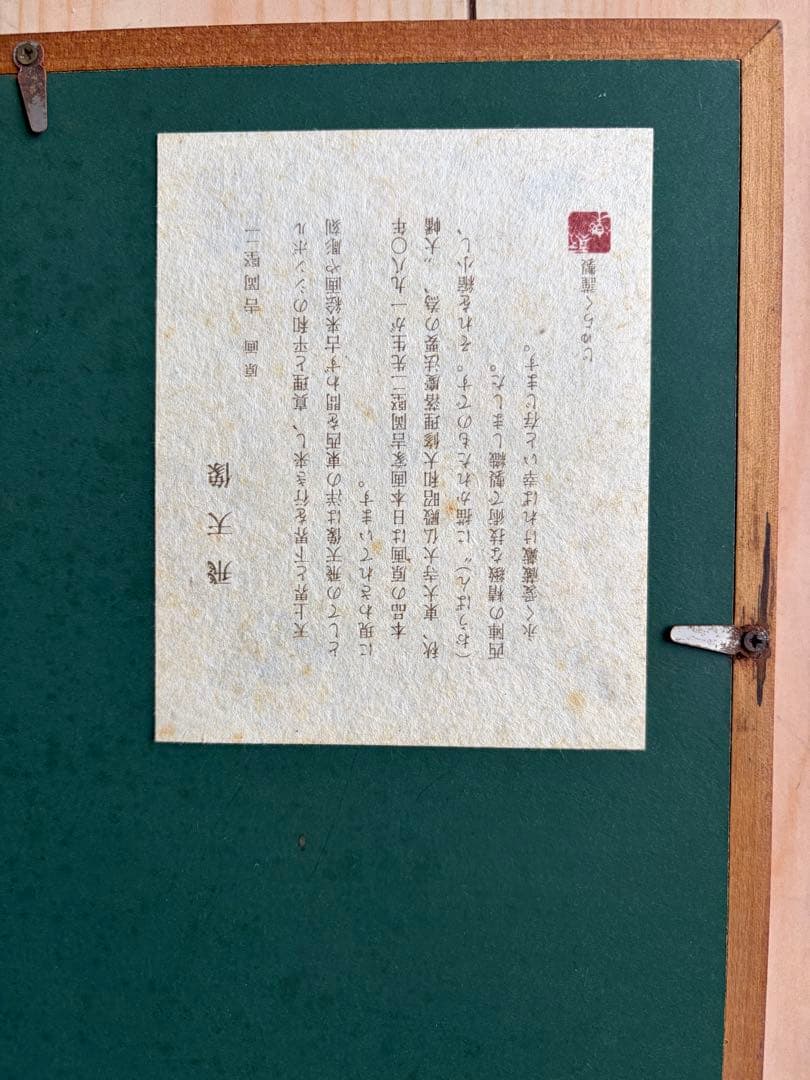 飛天像
原画 吉岡堅二
天上界と下界を行き来し、真理と平和のシンボル
としての飛天像は洋の東西を問わず古来絵画や彫刻
に現わされています。
本品の原画は日本画家吉岡堅二先生が一九八〇年
秋、東大寺大仏殿昭和大修理落慶法要の為、〝大幡
(おうばん)〟に描かれたものです。それを縮小し、
西陣の精緻な技術で製織しました。
永く愛蔵戴ければ幸いと存じます。
じゅらく謹製